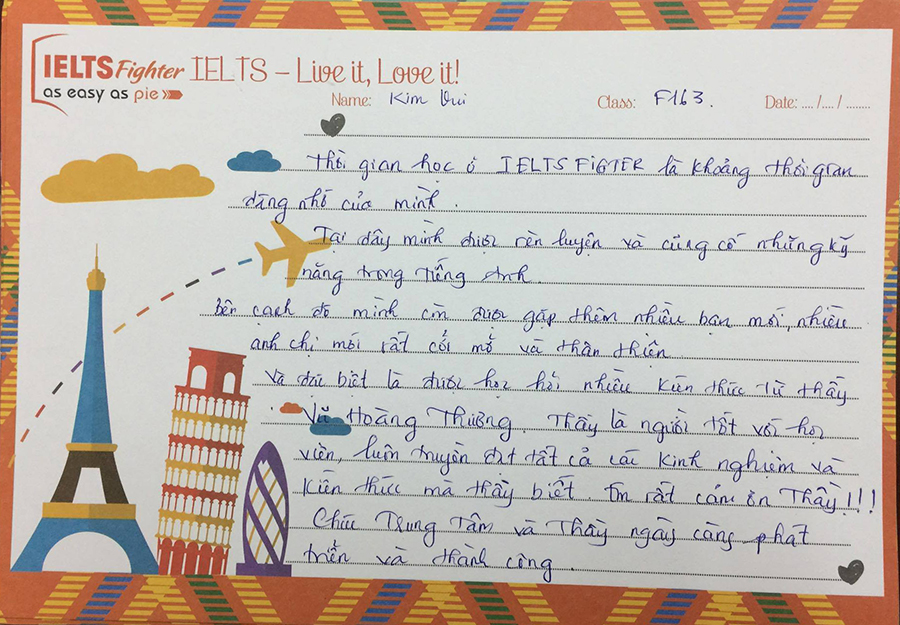 IELTS Fighter IELTS – Live it, Love it!
as easy as pie
Name: Kim Vui Class: F163. Date: .... /.... / ........
Thời gian học ở IELTS FIGTER là khoảng thời gian
đáng nhớ của mình.
Tại đây mình được rèn luyện và củng cố những kỹ
năng trong tiếng Anh.
Bên cạnh đó mình còn được gặp thêm nhiều bạn mới, nhiều
anh chị mới rất cởi mở và thân thiện
Và đặc biệt là được học hỏi nhiều kiến thức từ thầy
Vũ Hoàng Thưởng. Thầy là người tốt với học
viên, luôn truyền đạt tất cả các kinh nghiệm và
kiến thức mà thầy biết. Em rất cảm ơn Thầy!!!
Chúc Trung Tâm và Thầy ngày càng phát
triển và thành công.